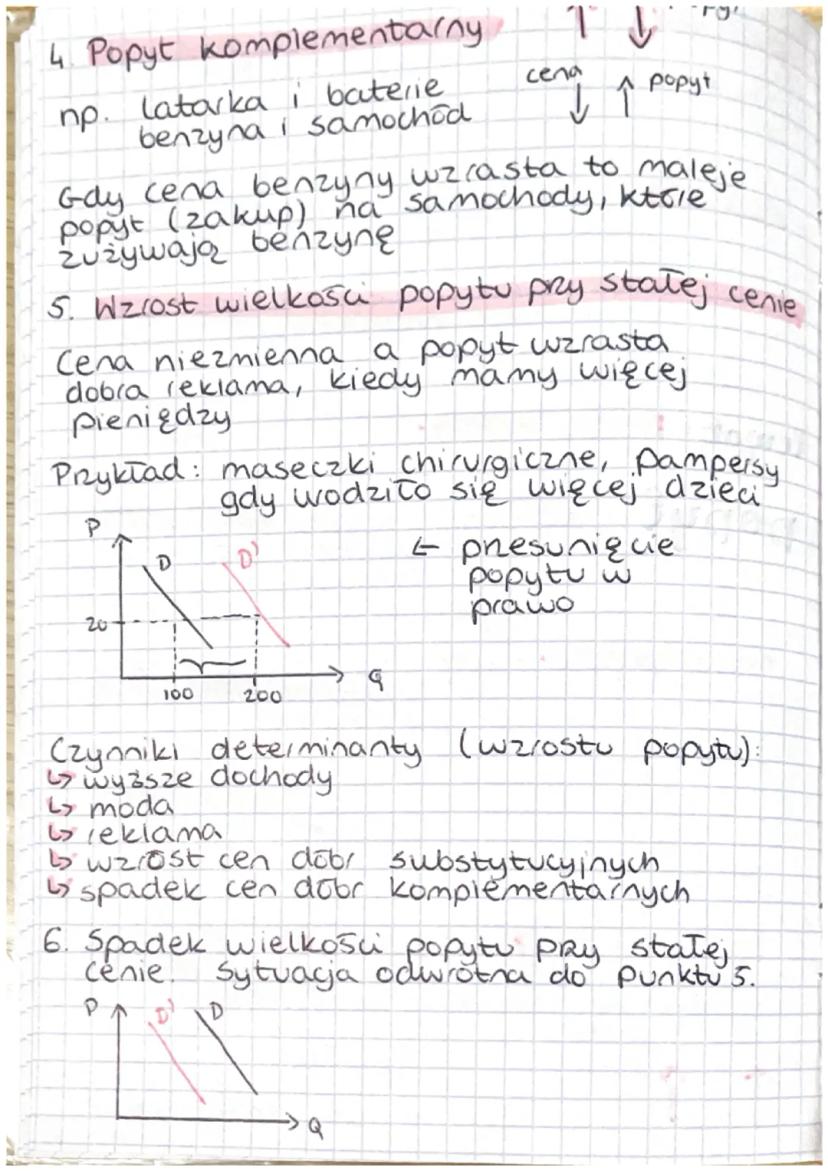 4. Popyt komplementarny
↑ ↓
np. latarka i baterie
benzyna i samochód
cena ↓ ↑ popyt
Gdy cena benzyny wzrasta to maleje
popyt (zakup) na samochody, które
zużywają benzynę
5. Wzrost wielkości popytu przy stałej cenie
Cena niezmienna a popyt wzrasta
dobra reklama, kiedy mamy więcej
pieniędzy
Przykład: maseczki chirurgiczne, pampersy
gdy wodziło się więcej dzieci
P
D D'
← przesunięcie
popytu w
prawo
20
100 200
Q
Czynniki determinanty (wzrostu popytu):
↳ wyższe dochody
↳ moda
↳ reklama
↳ wzrost cen dóbr substytucyjnych
↳ spadek cen dóbr komplementarnych
6. Spadek wielkości popytu przy stałej
cenie. Sytuacja odwrotna do punktu 5.
P
D' D
Q